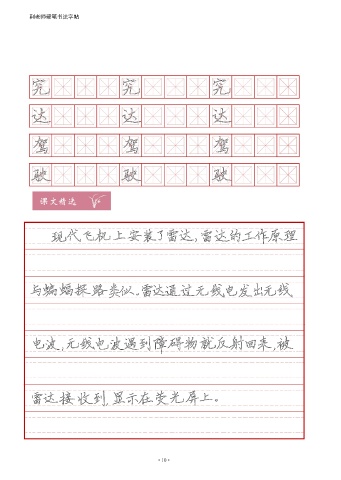 究 究 究
达 达 达
驾 驾 驾
驶 驶 驶
课文精选
现代飞机上安装了雷达,雷达的工作原理
与蝙蝠探路类似。雷达通过无线电发出无线
电波,无线电波遇到障碍物就反射回来,被
雷达接收到,显示在荧光屏上。